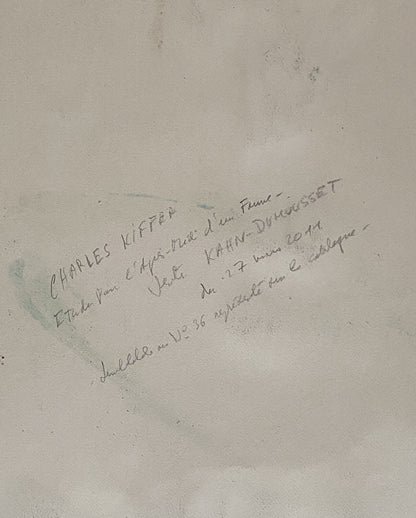 CHARLES KIFFER
Etude pour l'Après-midi d'un Faune-
Vente KAHN-DUMOUSSET
du 27 mars 2011
au N° 36 représenté sur le catalogue-